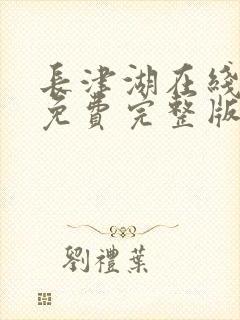 長津湖在綫
免費完整版
劉禮葉